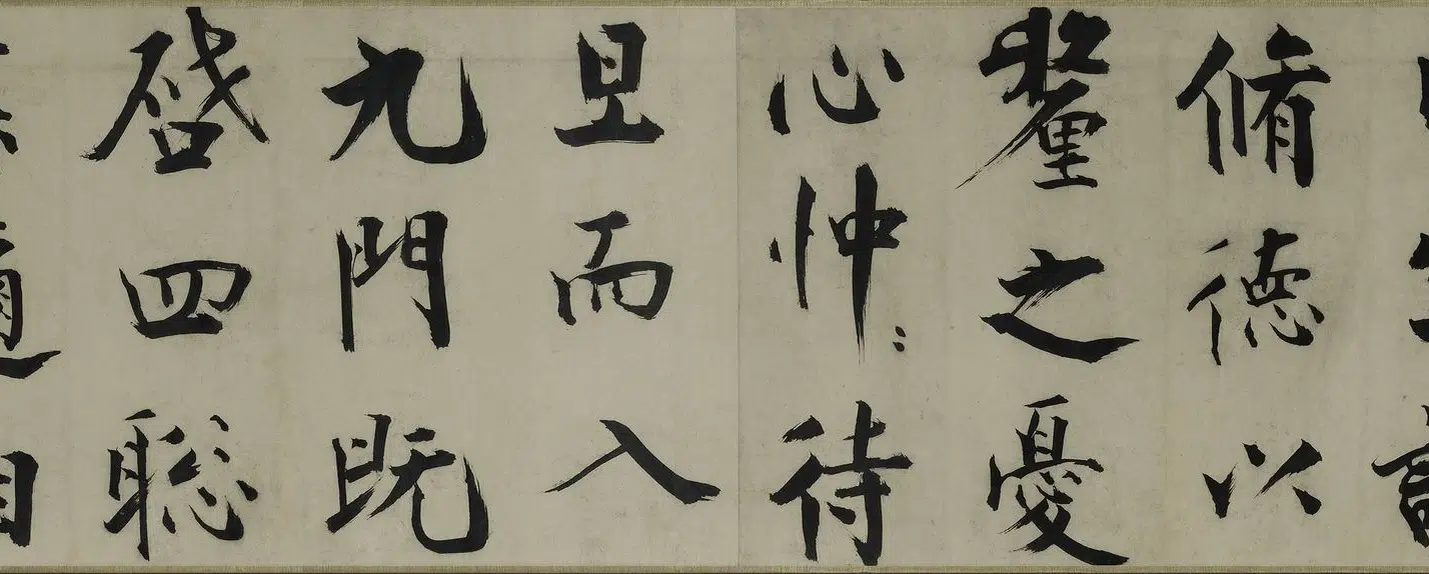 脩德以
釐之憂
心忡〻待
旦而入
九門既
啓四聰